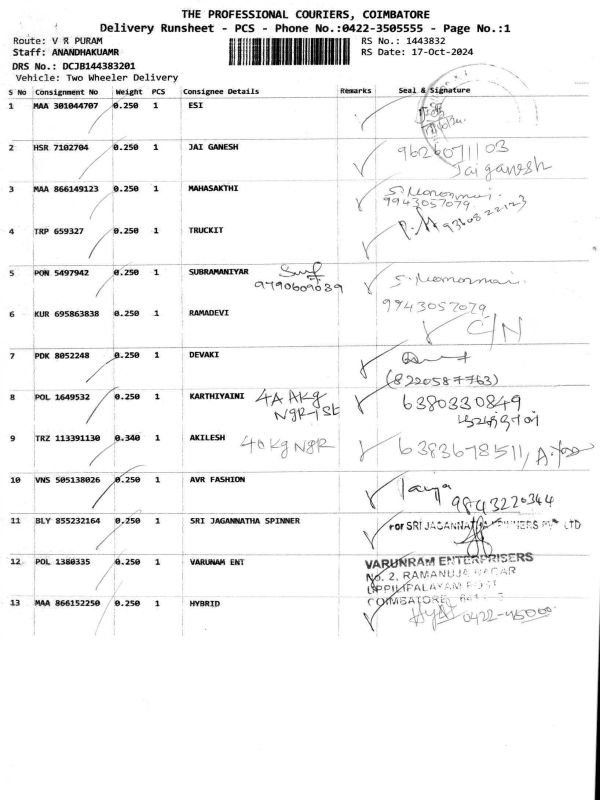 THE PROFESSIONAL COURIERS, COIMBATORE
Delivery Runsheet - PCS - Phone No.:0422-3505555 - Page No.:1
Route: V R PURAM RS No.: 1443832
Staff: ANANDHAKUAMR RS Date: 17-Oct-2024
DRS No.: DCJB144383201
Vehicle: Two Wheeler Delivery
S No Consignment No Weight PCS Consignee Details Remarks Seal & Signature
1 MAA 301044707 0.250 1 ESI
2 HSR 7102704 0.250 1 JAI GANESH 9626071103
Jaiganesh
3 MAA 866149123 0.250 1 MAHASAKTHI
9943057079
4 TRP 659327 0.250 1 TRUCKIT 9360822123
5 PON 5497942 0.250 1 SUBRAMANIYAR
9790609039
6 KUR 695863838 0.250 1 RAMADEVI 9943057079
C/N
7 PDK 8052248 0.250 1 DEVAKI
(8220587763)
8 POL 1649532 0.250 1 KARTHIYAINI 4A AKG 6380330849
NGR 1st
9 TRZ 113391130 0.340 1 AKILESH 40 KG NGR 6383678511,
10 VNS 505138026 0.250 1 AVR FASHION
9843220344
11 BLY 855232164 0.250 1 SRI JAGANNATHA SPINNER For SRI JAGANNATHA SPINNERS PVT LTD
12 POL 1380335 0.250 1 VARUNAM ENT VARUNRAM ENTERPRISERS
No. 2, RAMANUJA NAGAR
UPPILIPALAYAM POST
COIMBATORE
13 MAA 866152250 0.250 1 HYBRID